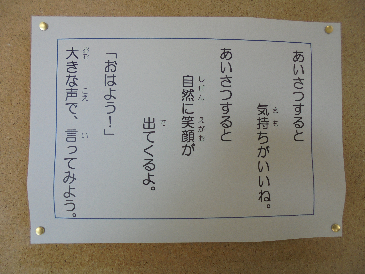 あいさつすると
気持ちがいいね。
あいさつすると
自然に笑顔が
出てくるよ。
「おはよう！」
大きな声で、言ってみよう。